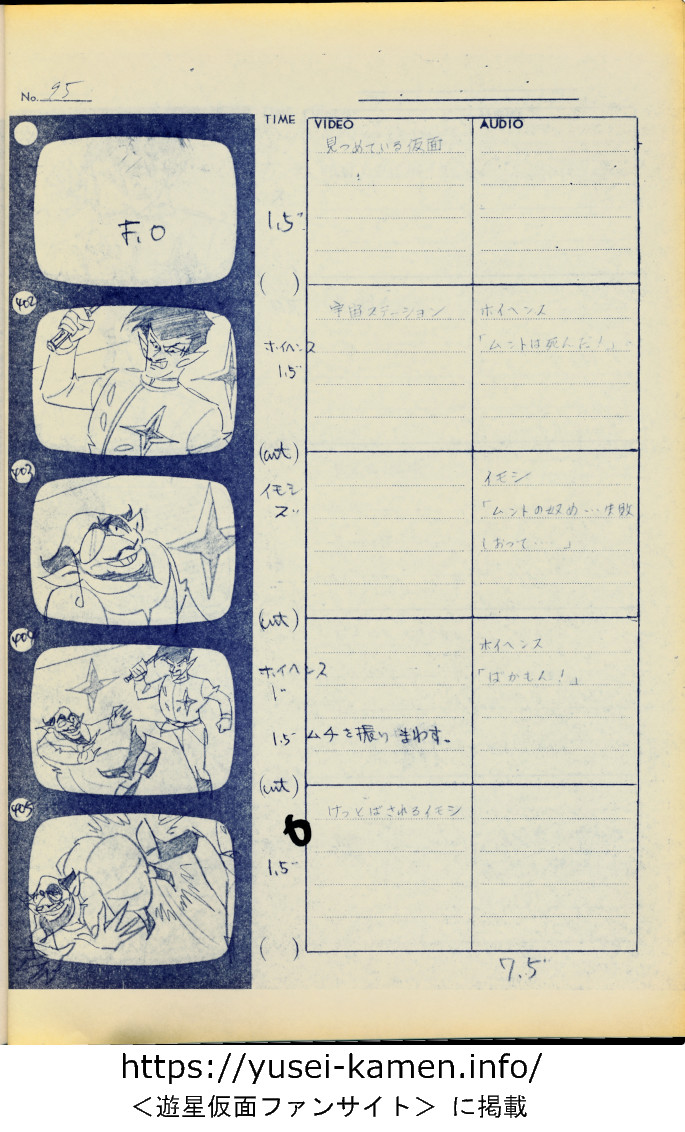 No. 95
TIME VIDEO AUDIO
F.O
1.5"
見つめている仮面
( )
402
ホイヘンス
1.5"
宇宙ステーション
ホイヘンス
「ムントは死んだ!」
(cut)
403
イモシ
2"
イモシ
「ムントの奴め…失敗
しおって……」
(cut)
404
ホイヘンス
1"
1.5 ムチを振りまわす。
ホイヘンス
「ばかもん!」
(cut)
405
6
1.5"
けっとばされるイモシ
( )
7.5"
https://yusei-kamen.info/
<遊星仮面ファンサイト> に掲載